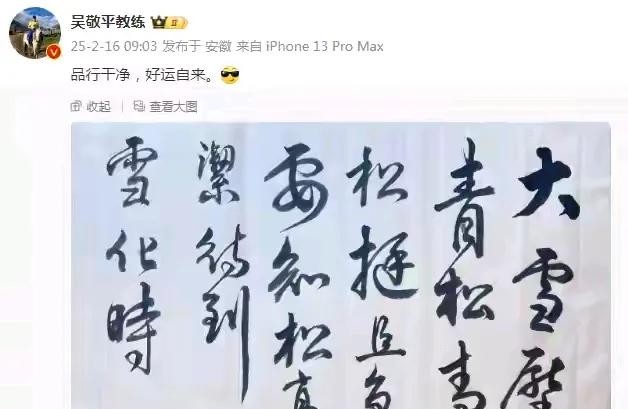 吴敬平教练
25-2-16 09:03 发布于 安徽 来自 iPhone 13 Pro Max
品行干净，好运自来。😎
收起 | 查看大图
大雪壓
青松青
松挺且
要知松高
潔待到
雪化時